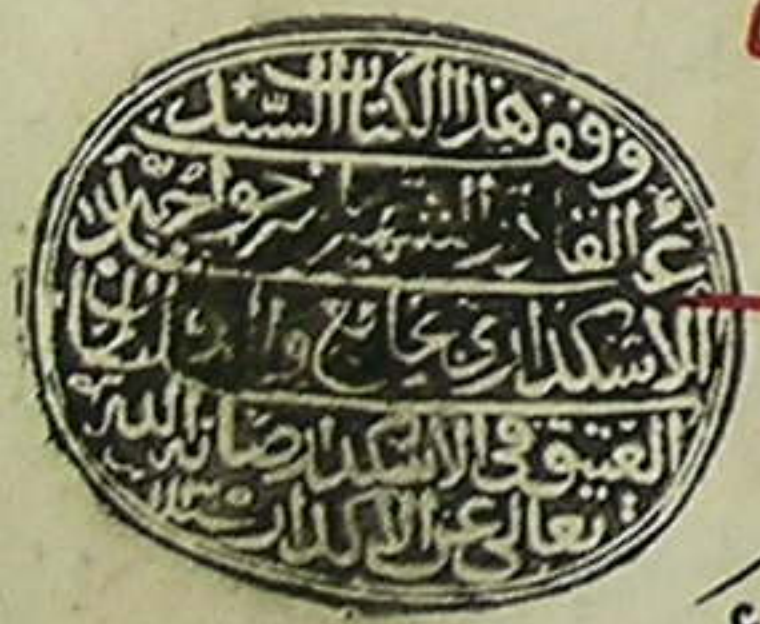 وقف هذا الكتاب السيد
عبد القادر الشهير بخواجه
الاسكداري بجامع والده سلطان
العتيق في الاسكدار صانه الله
تعالى عن الاكدار سنة